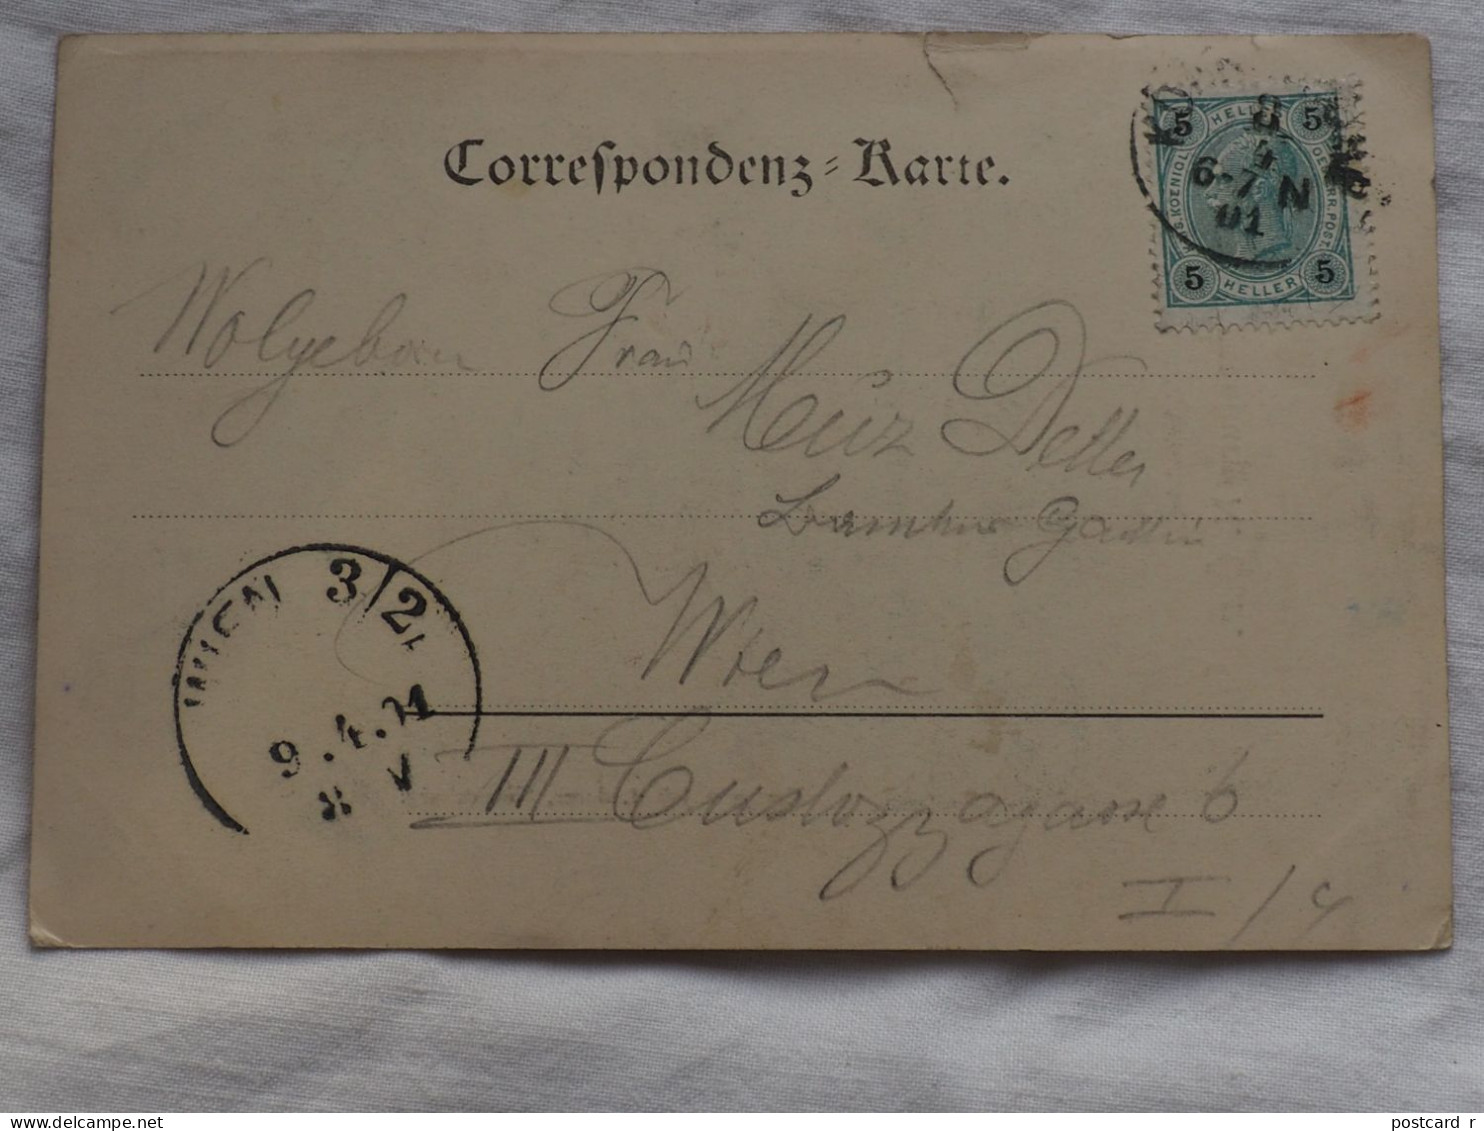 Correspondenz-Karte.
5 HELLER 5
8
4
6-7 N
01
5 HELLER 5
Wolgeboren Frau
Deller
Wien
WIEN 3/2
9.4.01
8 V
III Custozzagasse 6
I/4
postcard r